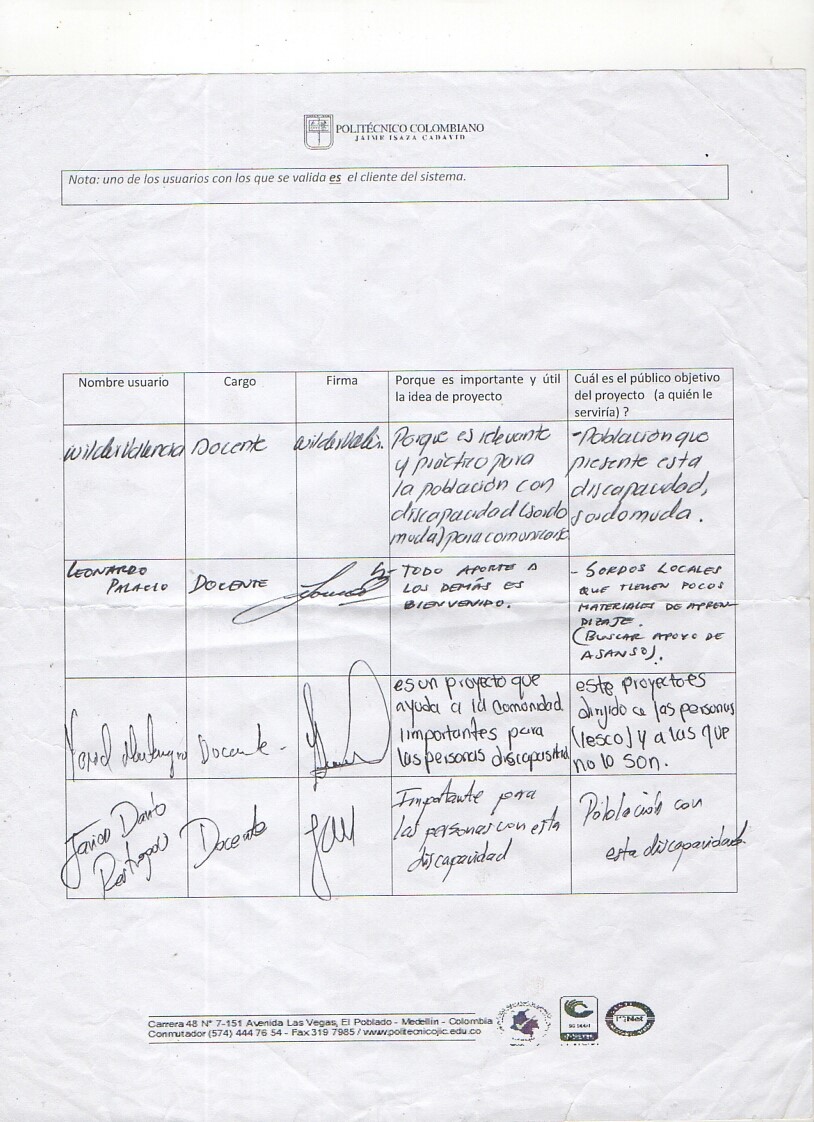 POLITÉCNICO COLOMBIANO
JAIME ISAZA CADAVID
Nota: uno de los usuarios con los que se valida es el cliente del sistema.
Nombre usuario
Cargo
Firma
Porque es importante y útil
la idea de proyecto
Cuál es el público objetivo
del proyecto (a quién le
serviría) ?
Wilder Valencia
Docente
Porque es relevante
y práctico para
la población con
discapacidad (sordo
muda) para comunicarse
-Población que
presente esta
discapacidad,
sordomuda.
LEONARDO
PALACIO
DOCENTE
- TODO APORTE A
LOS DEMÁS ES
BIENVENIDO.
- SORDOS LOCALES
QUE TIENEN POCOS
MATERIALES DE APREN
DIZAJE.
(BUSCAR APOYO DE
ASANSO).
Docente -
es un proyecto que
ayuda a la comunidad
importantes para
las personas discapasitad
este proyecto es
dirijido a las personas
(lesco) y a las que
no lo son.
Darío
Docente
Importante para
las personas con esta
discapacidad
Población con
esta discapacidad.
Carrera 48 N° 7-151 Avenida Las Vegas, El Poblado - Medellín - Colombia
Conmutador (574) 444 76 54 - Fax 319 7985 / www.politecnicojic.edu.co
IQNet